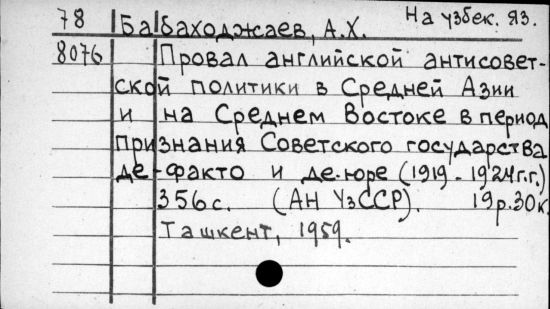 78 Бабаходжаев, А.Х. На узбек. яз.
8076 Провал английской антисовет-
ской политики в Средней Азии
и на Среднем Востоке в период
признания Советского государства
де-факто и де-юре (1919-1924г.г.)
356с. (АН УзССР). 19р.30к.
Ташкент, 1959.